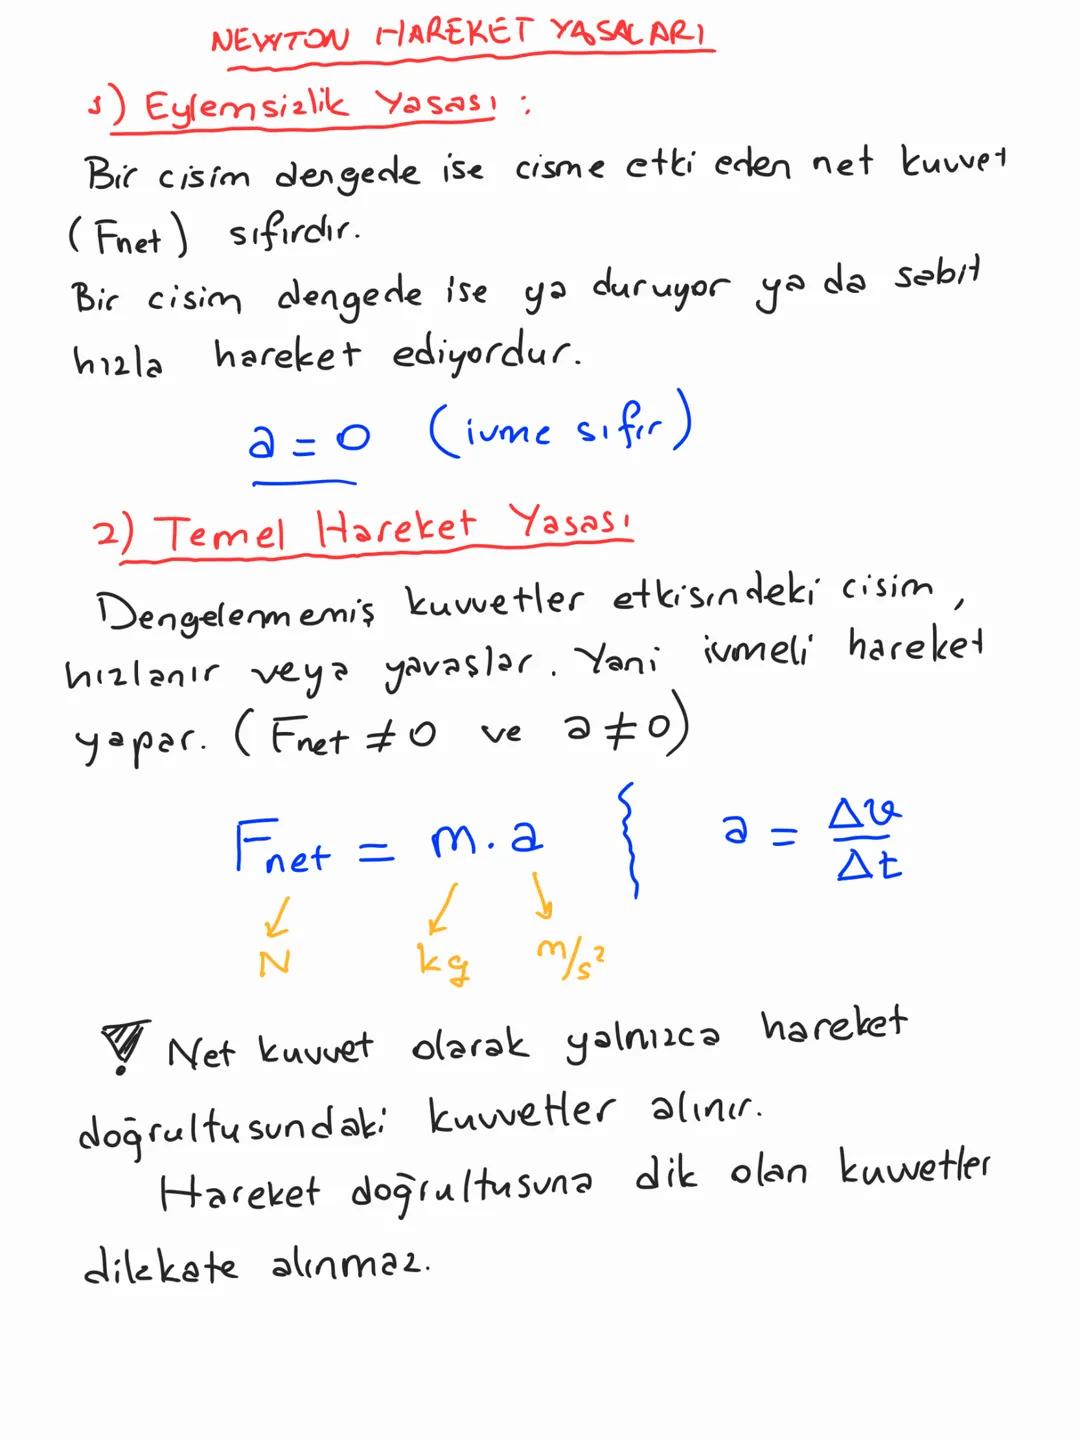 NEWTON HAREKET YASALARI
1) Eylemsizlik Yasası :
Bir cisim dengede ise cisme etki eden net kuvvet
(Fnet) sıfırdır.
Bir cisim dengede ise ya duruyor ya da sabit
hızla hareket ediyordur.
a = 0 (ivme sıfır)
2) Temel Hareket Yasası
Dengelenmemiş kuvvetler etkisindeki cisim,
hızlanır veya yavaşlar. Yani ivmeli hareket
yapar. (Fnet ≠ 0 ve a ≠ 0)
Fnet = m.a { a = Δv/Δt
N kg m/s²
Net kuvvet olarak yalnızca hareket
doğrultusundaki kuvvetler alınır.
Hareket doğrultusuna dik olan kuvvetler
dikkate alınmaz.